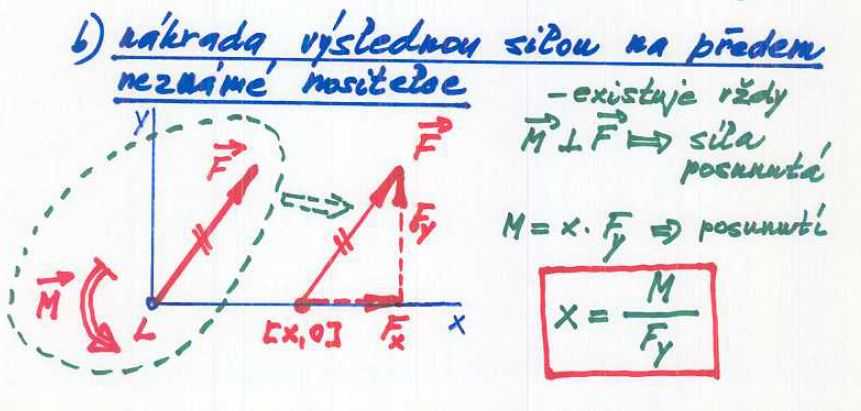 b) náhrada výslednou silou na předem
neznámé nositelce
- existuje vždy
M ⊥ F ⇒ síla
posunutá
M = x · F_y ⇒ posunutí
x = M / F_y
y
F
F
F_y
M
L
[x,0]
F_x
x